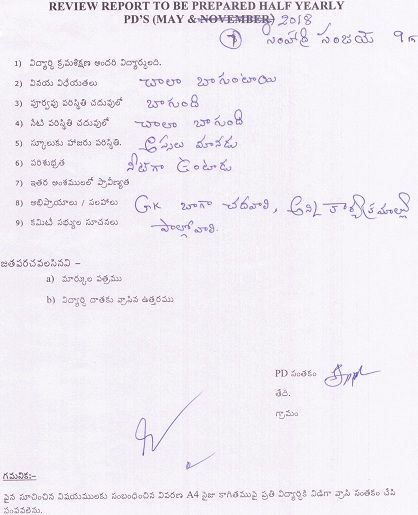 REVIEW REPORT TO BE PREPARED HALF YEARLY
PD'S (MAY & NOVEMBER) 2018
సింహాద్రి సంజయ్ 9వ
1) విద్యార్థి క్రమశిక్షణ అందరి విద్యార్థులది.
2) వినయ విధేయతలు చాలా బాగుంటాయి
3) పూర్వపు పరిస్థితి చదువులో బాగుంది
4) నేటి పరిస్థితి చదువులో చాలా బాగుంది
5) స్కూలుకు హాజరు పరిస్థితి. అస్సలు మానడు
6) పరిశుభ్రత నీట్‌గా ఉంటాడు
7) ఇతర అంశములలో ప్రావీణ్యత
8) అభిప్రాయాలు / సలహాలు GK బాగా చదవాలి, అన్ని కార్యక్రమాల్లో
9) కమిటీ సభ్యుల సూచనలు పాల్గోవాలి.
జతపరచవలసినవి –
a) మార్కుల పత్రము
b) విద్యార్థి దాతకు వ్రాసిన ఉత్తరము
PD సంతకం
తేది.
గ్రామం
గమనిక:–
పైన సూచించిన విషయములకు సంబంధించిన వివరణ A4 సైజు కాగితముపై ప్రతి విద్యార్థికి విడిగా వ్రాసి సంతకం చేసి
పంపవలెను.